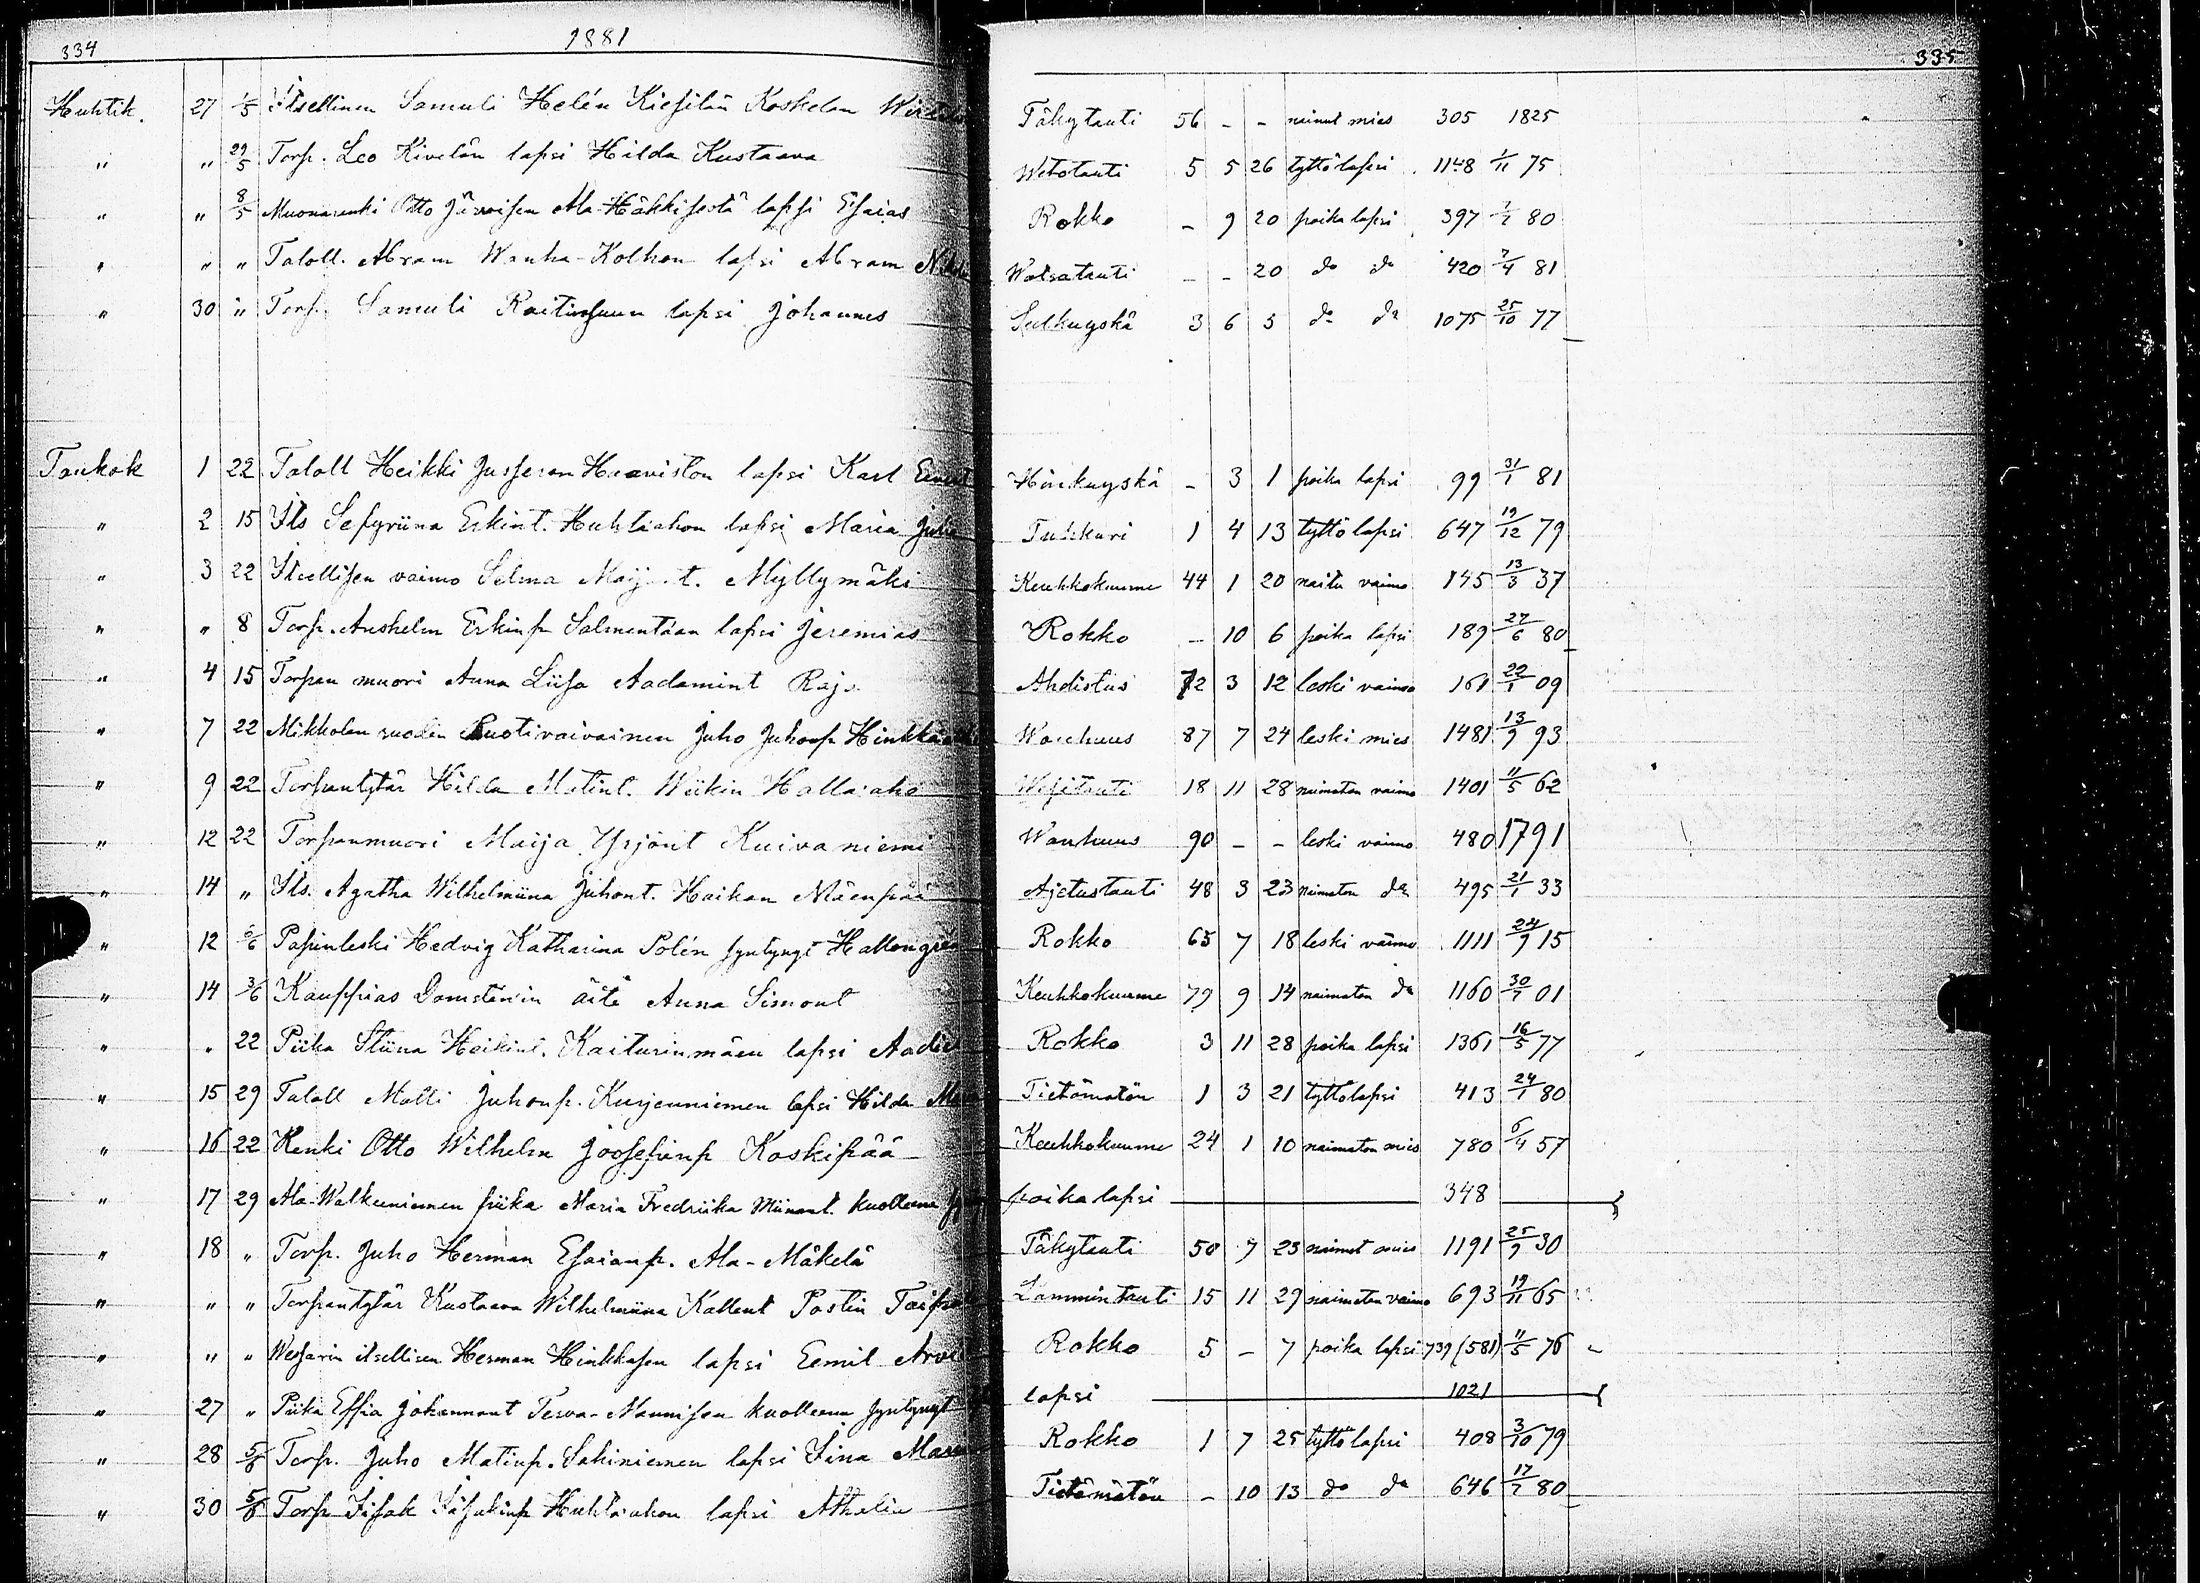 334 1881 335
Huhtik. 27 1/5 Itsellinen Samuli Helén Kiesilän Koskelan Tähytauti 56 - - nainut mies 305 1825
" " 29/5 Torp. Leo Kivelän lapsi Hilda Kustaava Wetotauti 5 5 26 tyttölapsi 1148 1/11 75
" " 8/5 Muonarenki Otto Järvisen Ala-Häkkisestä lapsi Esaias Rokko - 9 20 poika lapsi 397 80
" " " Taloll. Abram Wanha-Kolhon lapsi Abram Watsatauti - - 20 do do 420 7/4 81
" 30 " Torp. Samuli lapsi Johannes Selkuyskä 3 6 5 do do 1075 25/10 77
Toukok 1 22 Taloll Heikki Jusseran Haaviston lapsi Karl Hinkuyskä - 3 1 poika lapsi 99 31/1 81
" 2 15 Its Sefyriina Erkint. Huhtiahon lapsi Maria Tuhkuri 1 4 13 tyttö lapsi 647 19/12 79
" 3 22 Itsellisen vaimo Selma Myllymäki Keuhkokuume 44 1 20 naitu vaimo 145 13/3 37
" " 8 Torp. Anshelm Erkinp Salmentaan lapsi Jeremias Rokko - 10 6 poika lapsi 189 27/6 80
" 4 15 Torpan muori Anna Liisa Aadamint Ahdistus 72 3 12 leski vaimo 161 22/1 09
" 7 22 Mikkolan ruodin Ruotivaivainen Juho Juhonp Wanhuus 87 7 24 leski mies 1481 13/9 93
" 9 22 Torpantytär Hilda Matint. Wiikin Hallaaho Wesitauti 18 11 28 naimaton vaimo 1401 11/5 62
" 12 22 Torpanmuori Maija Yrjönt Kuivaniemi Wanhuus 90 - - leski vaimo 480 1791
" 14 " Its. Agatha Wilhelmiina Juhont. Haikan Mäenpää Ajetustauti 48 3 23 naimaton do 495 21/1 33
" 12 5/6 Papinleski Hedvig Katharina Polén syntynyt Rokko 65 7 18 leski vaimo 1111 24/9 15
" 14 3/6 Kauppias Domsténin äiti Anna Simont Keuhkokuume 79 9 14 naimaton do 1160 30/7 01
" " 22 Piika Stiina Heikint. Kaiturinmäen lapsi Rokko 3 11 28 poika lapsi 1361 16/5 77
" 15 29 Taloll Matti Juhonp. Kurjenniemen lapsi Hilda Tietämätön 1 3 21 tyttölapsi 413 24/1 80
" 16 22 Renki Otto Wilhelm Joosefinp Koskipää Keuhkokuume 24 1 10 naimaton mies 780 6/4 57
" 17 29 Ala-Walkeeniemen piika Maria Fredriika kuolleena poika lapsi 348
" 18 " Torp. Juho Herman Esaianp. Ala-Mäkelä Tähytauti 50 7 23 nainut mies 1191 25/9 30
" " " Torpantytär Kustaava Wilhelmiina Kallent Postin Lammintauti 15 11 29 naimaton vaimo 693 19/11 65
" " " Wessarin itsellisen Herman Hinkkasen lapsi Eemil Rokko 5 - 7 poika lapsi 739 (581) 11/5 76
" 27 " Piika Effia Johannant Terva-Mannisen kuolleena syntynyt lapsi 1021
" 28 5/6 Torp. Juho Matinp. Sahiniemen lapsi Rokko 1 7 25 tyttölapsi 408 3/10 79
" 30 5/6 Torp Iisak Iisakinp Huhtiahon lapsi Tietämätön - 10 13 do do 646 17/7 80